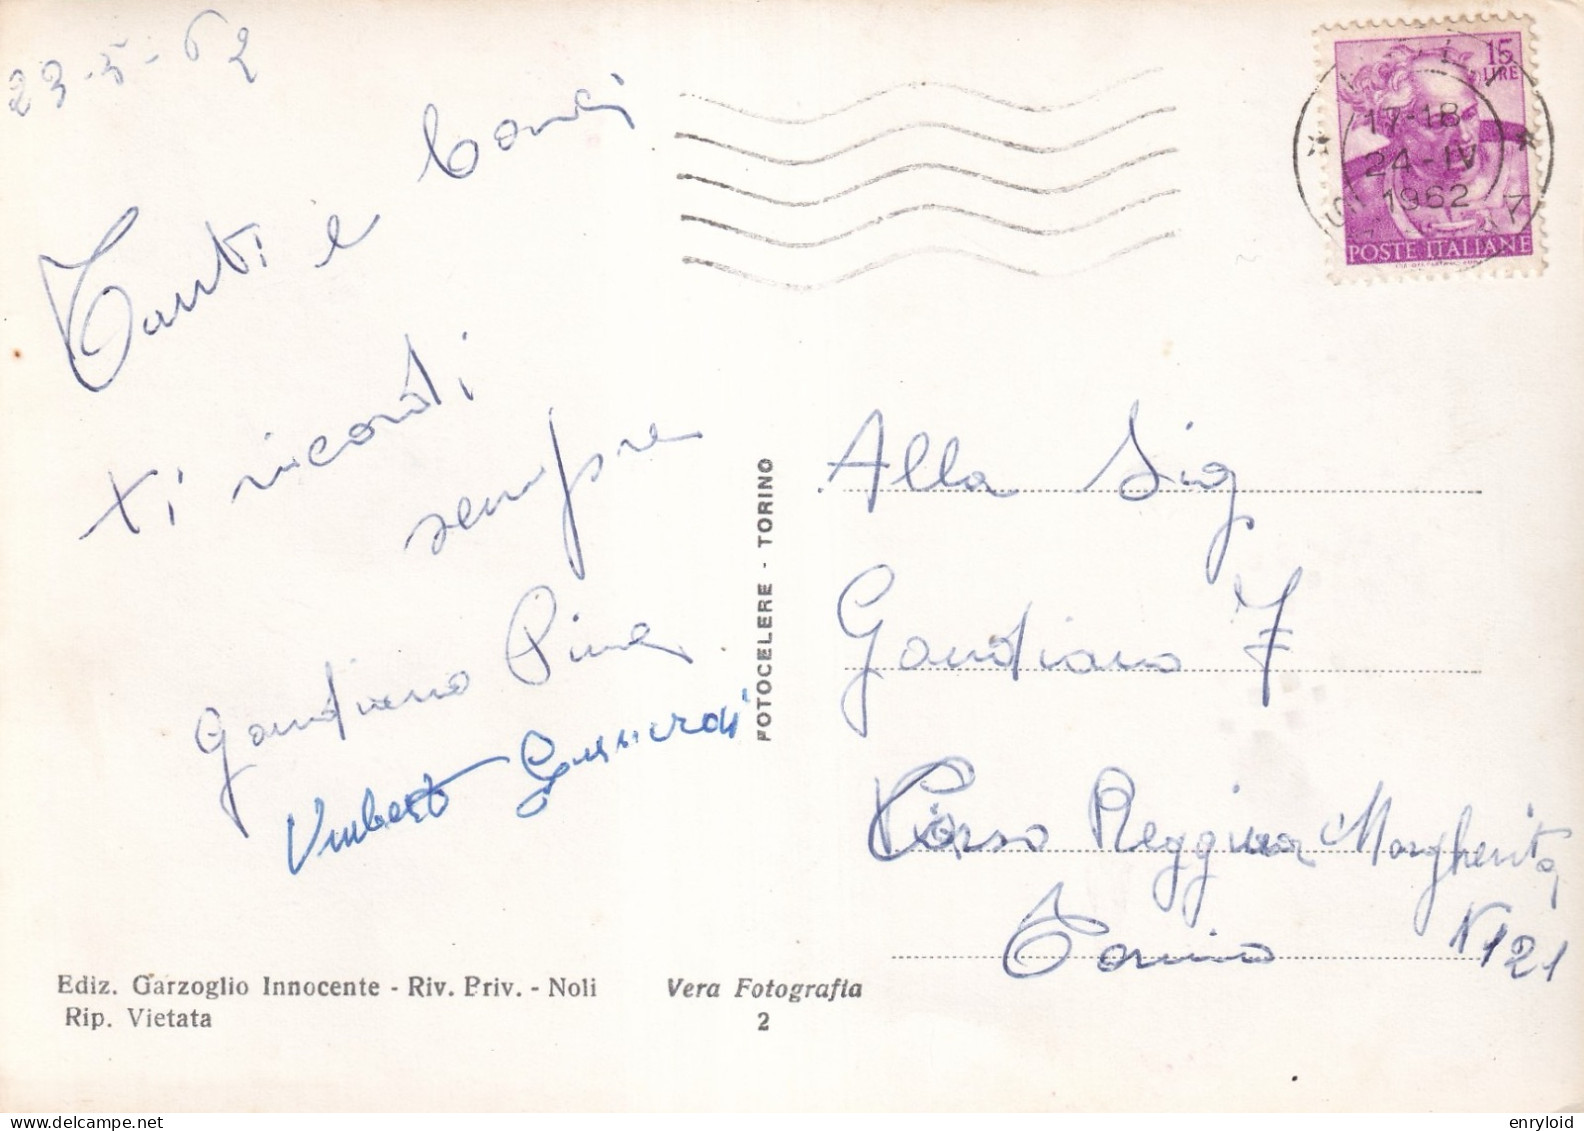 23-5-62
Tanti e Cari
ti ricordi
sempre
Gandiano Pina
Umberto
15
LIRE
17-18
24-IV
1962
POSTE ITALIANE
FOTOCELERE - TORINO
Alla Sig
Gandiano F
Corso Reggina Margherita
N 121
Torino
Ediz. Garzoglio Innocente - Riv. Priv. - Noli
Rip. Vietata
Vera Fotografia
2
enryloid
delcampe.net